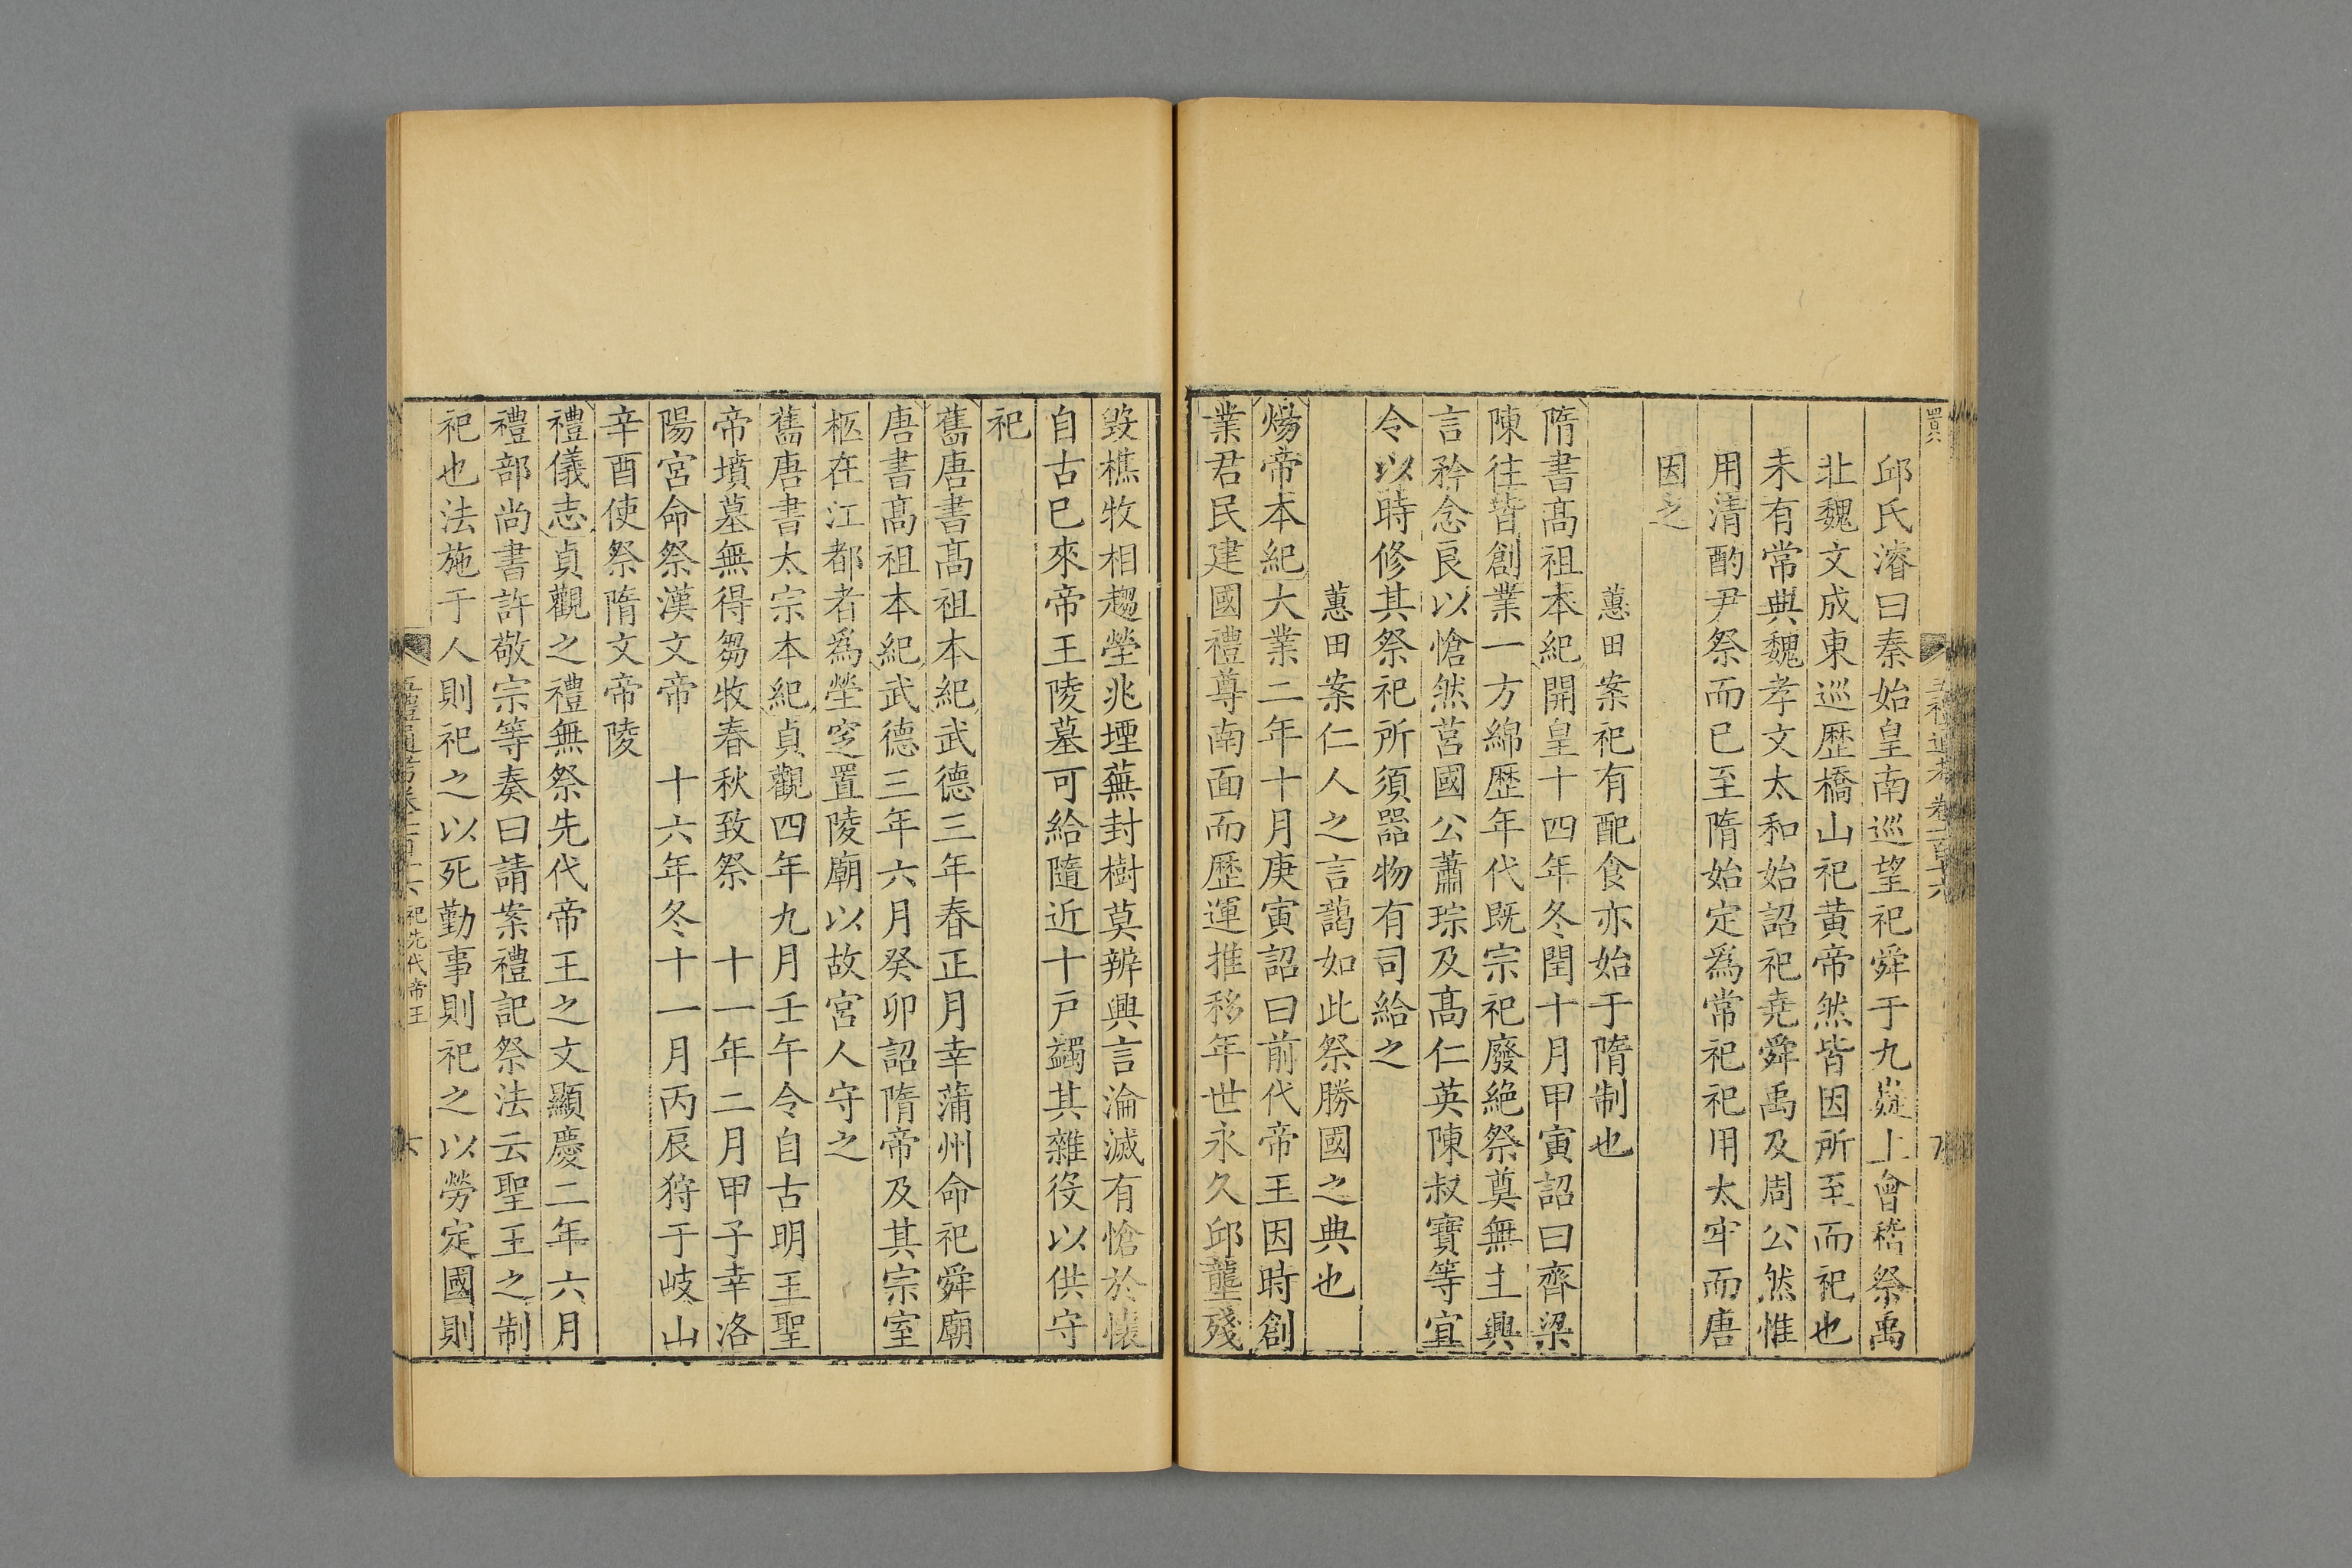 邱氏濬曰秦始皇南巡望祀舜于九嶷上會稽祭禹
北魏文成東巡歷橋山祀黄帝然皆因所至而祀也
未有常典魏孝文太和始詔祀堯舜禹及周公然惟
用清酌尹祭而已至隋始定爲常祀祀用太牢而唐
因之
蕙田案祀有配食亦始于隋制也
隋書髙祖本紀開皇十四年冬閏十月甲寅詔曰齊梁
陳往皆創業一方綿歷年代既宗祀廢絶祭奠無主興
言矜念良以愴然莒國公蕭琮及髙仁英陳叔寶等宜
令以時修其祭祀所須器物有司給之
蕙田案仁人之言藹如此祭勝國之典也
煬帝本紀大業二年十月庚寅詔曰前代帝王因時創
業君民建國禮尊南面而歷運推移年世永久邱壟殘
毀樵牧相趨塋兆堙蕪封樹莫辨興言淪滅有愴於懷
自古已來帝王陵墓可給隨近十戸蠲其雜役以供守
祀
舊唐書髙祖本紀武德三年春正月幸蒲州命祀舜廟
唐書髙祖本紀武德三年六月癸卯詔隋帝及其宗室
柩在江都者爲塋窆置陵廟以故宮人守之
舊唐書太宗本紀貞觀四年九月壬午令自古明王聖
帝墳墓無得芻牧春秋致祭　十一年二月甲子幸洛
陽宮命祭漢文帝　十六年冬十一月丙辰狩于岐山
辛酉使祭隋文帝陵
禮儀志貞觀之禮無祭先代帝王之文顯慶二年六月
禮部尚書許敬宗等奏曰請案禮記祭法云聖王之制
祀也法施于人則祀之以死勤事則祀之以勞定國則
五禮通考卷一百十六　祀先代帝王